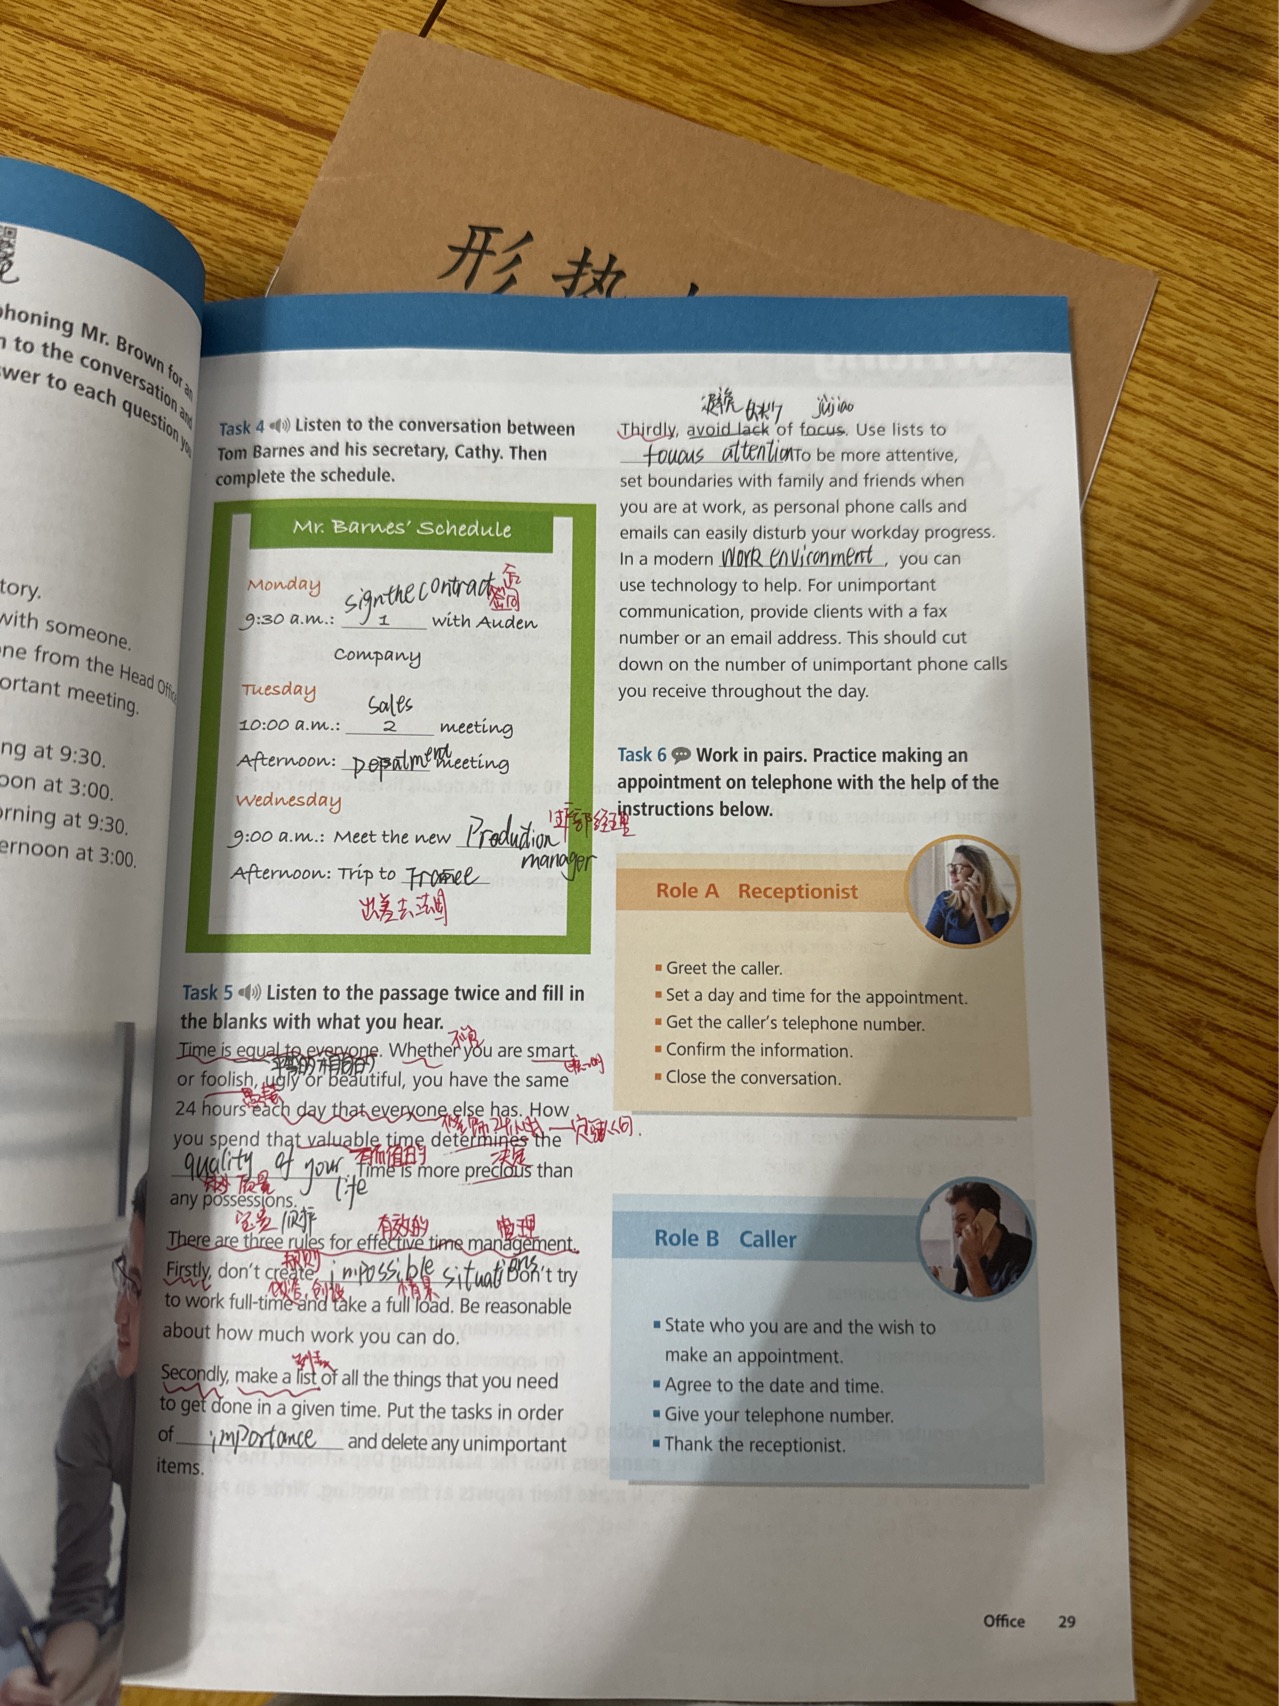 形势
honing Mr. Brown for an
n to the conversation and
wer to each question you
tory.
with someone.
ne from the Head Offic
ortant meeting.
ng at 9:30.
oon at 3:00.
orning at 9:30.
ernoon at 3:00.
Task 4 Listen to the conversation between
Tom Barnes and his secretary, Cathy. Then
complete the schedule.
Mr. Barnes' Schedule
Monday
sign the contract
9:30 a.m.: 1 with Auden
Company
Tuesday
Sales
10:00 a.m.: 2 meeting
Afternoon: Depalment meeting
Wednesday
9:00 a.m.: Meet the new Prodution
manager
Afternoon: Trip to
出差去法国
Task 5 Listen to the passage twice and fill in
the blanks with what you hear.
Time is equal to everyone. Whether you are smart
or foolish, ugly or beautiful, you have the same
愚蠢
24 hours each day that everyone else has. How
you spend that valuable time determines the
有价值的 决定
quality of your life. Time is more precious than
any possessions.
有效的 管理
There are three rules for effective time management.
规则
Firstly, don't create impossible situations Don't try
to work full-time and take a full load. Be reasonable
about how much work you can do.
列表
Secondly, make a list of all the things that you need
to get done in a given time. Put the tasks in order
of importance and delete any unimportant
items.
避免 缺少 jùjiāo
Thirdly, avoid lack of focus. Use lists to
fouous attention To be more attentive,
set boundaries with family and friends when
you are at work, as personal phone calls and
emails can easily disturb your workday progress.
In a modern work environment, you can
use technology to help. For unimportant
communication, provide clients with a fax
number or an email address. This should cut
down on the number of unimportant phone calls
you receive throughout the day.
Task 6 Work in pairs. Practice making an
appointment on telephone with the help of the
instructions below.
Role A Receptionist
Greet the caller.
Set a day and time for the appointment.
Get the caller's telephone number.
Confirm the information.
Close the conversation.
Role B Caller
State who you are and the wish to
make an appointment.
Agree to the date and time.
Give your telephone number.
Thank the receptionist.
Office 29